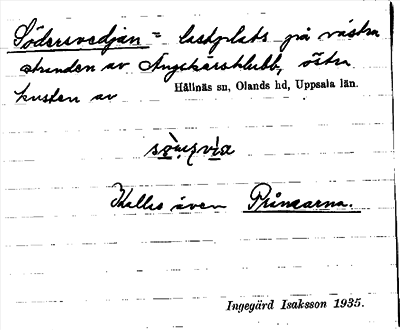 Södersvedjan = lastplats på västra
stranden av Ängskärsklubb, östra
kusten av Hållnäs sn, Olands hd, Uppsala län.
Kallas även Prinsarna.
Ingegärd Isaksson 1935.